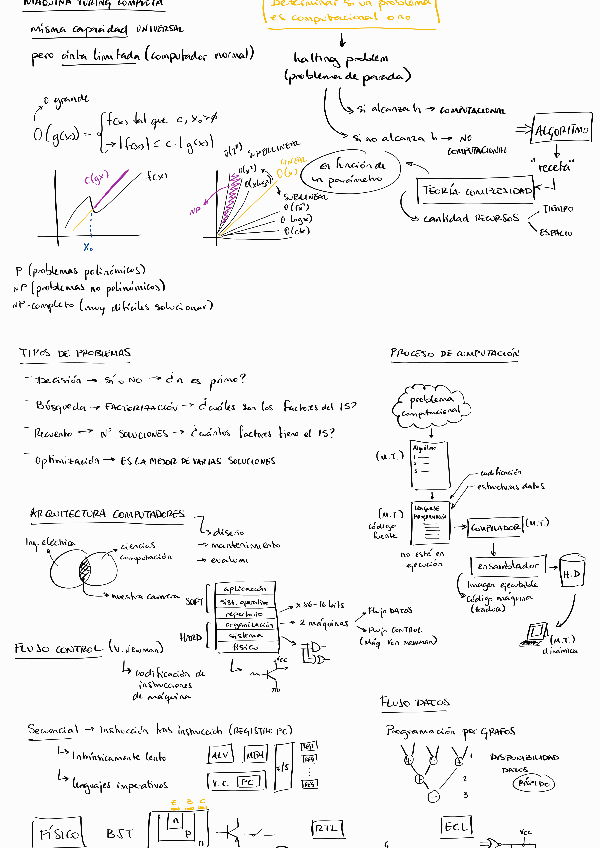 MÁQUINA TURING COMPACTA
misma capacidad UNIVERSAL
pero cinta limitada (computador normal)
Determinar si un problema
es computacional o no
halting problem
(problema de parada)
si alcanza h → COMPUTACIONAL
si no alcanza h → NO
COMPUTACIONAL
ALGORITMO
"receta"
TEORÍA COMPLEJIDAD
cantidad RECURSOS
TIEMPO
ESPACIO
Es función de
un parámetro
O grande
f(x) tal que c, x₀ > 0
→ |f(x)| ≤ c · |g(x)|
c(gx)
f(x)
X₀
NP
SUPERLINEAL
LINEAL
O(x)
SUBLINEAL
O(logx)
P (problemas polinómicos)
NP (problemas no polinómicos)
NP-completo (muy difíciles solucionar)
TIPOS DE PROBLEMAS
- Decisión → SÍ o NO → ¿n es primo?
- Búsqueda → FACTORIZACIÓN → ¿cuáles son los factores del 15?
- Recuento → Nº SOLUCIONES → ¿cuántos factores tiene el 15?
- Optimización → ES LA MEJOR DE VARIAS SOLUCIONES
PROCESO DE COMPUTACIÓN
problema
computacional
(M.T.)
Algoritmo
1
2
3
codificación
estructuras datos
(M.T.)
código
fuente
LENGUAJE
PROGRAMACIÓN
no está en
ejecución
COMPILADOR
(M.T.)
ensamblador
H.D
Imagen ejecutable
Código máquina
(M.T.)
dinámica
ARQUITECTURA COMPUTADORES
diseño
mantenimiento
evaluar
Ing. eléctrica
ciencias
computación
nuestra carrera
SOFT
HARD
aplicación
sist. operativo
repertorio
organización
sistema
físico
x86-16 bits
2 máquinas
Flujo DATOS
Flujo CONTROL
(Máq Von Newman)
VCC
FLUJO CONTROL (V. Newman)
codificación de
instrucciones
de máquina
Secuencial → Instrucción tras instrucción (REGISTRO PC)
Intrínsicamente lento
lenguajes imperativos
ALU
MEM
U.C.
PC
E/S
FLUJO DATOS
Programación por GRAFOS
1
2
3
DISPONIBILIDAD
DATOS
RÁPIDO
E B C
FÍSICO
BST
n
P
n
RTL
ECL
VCC